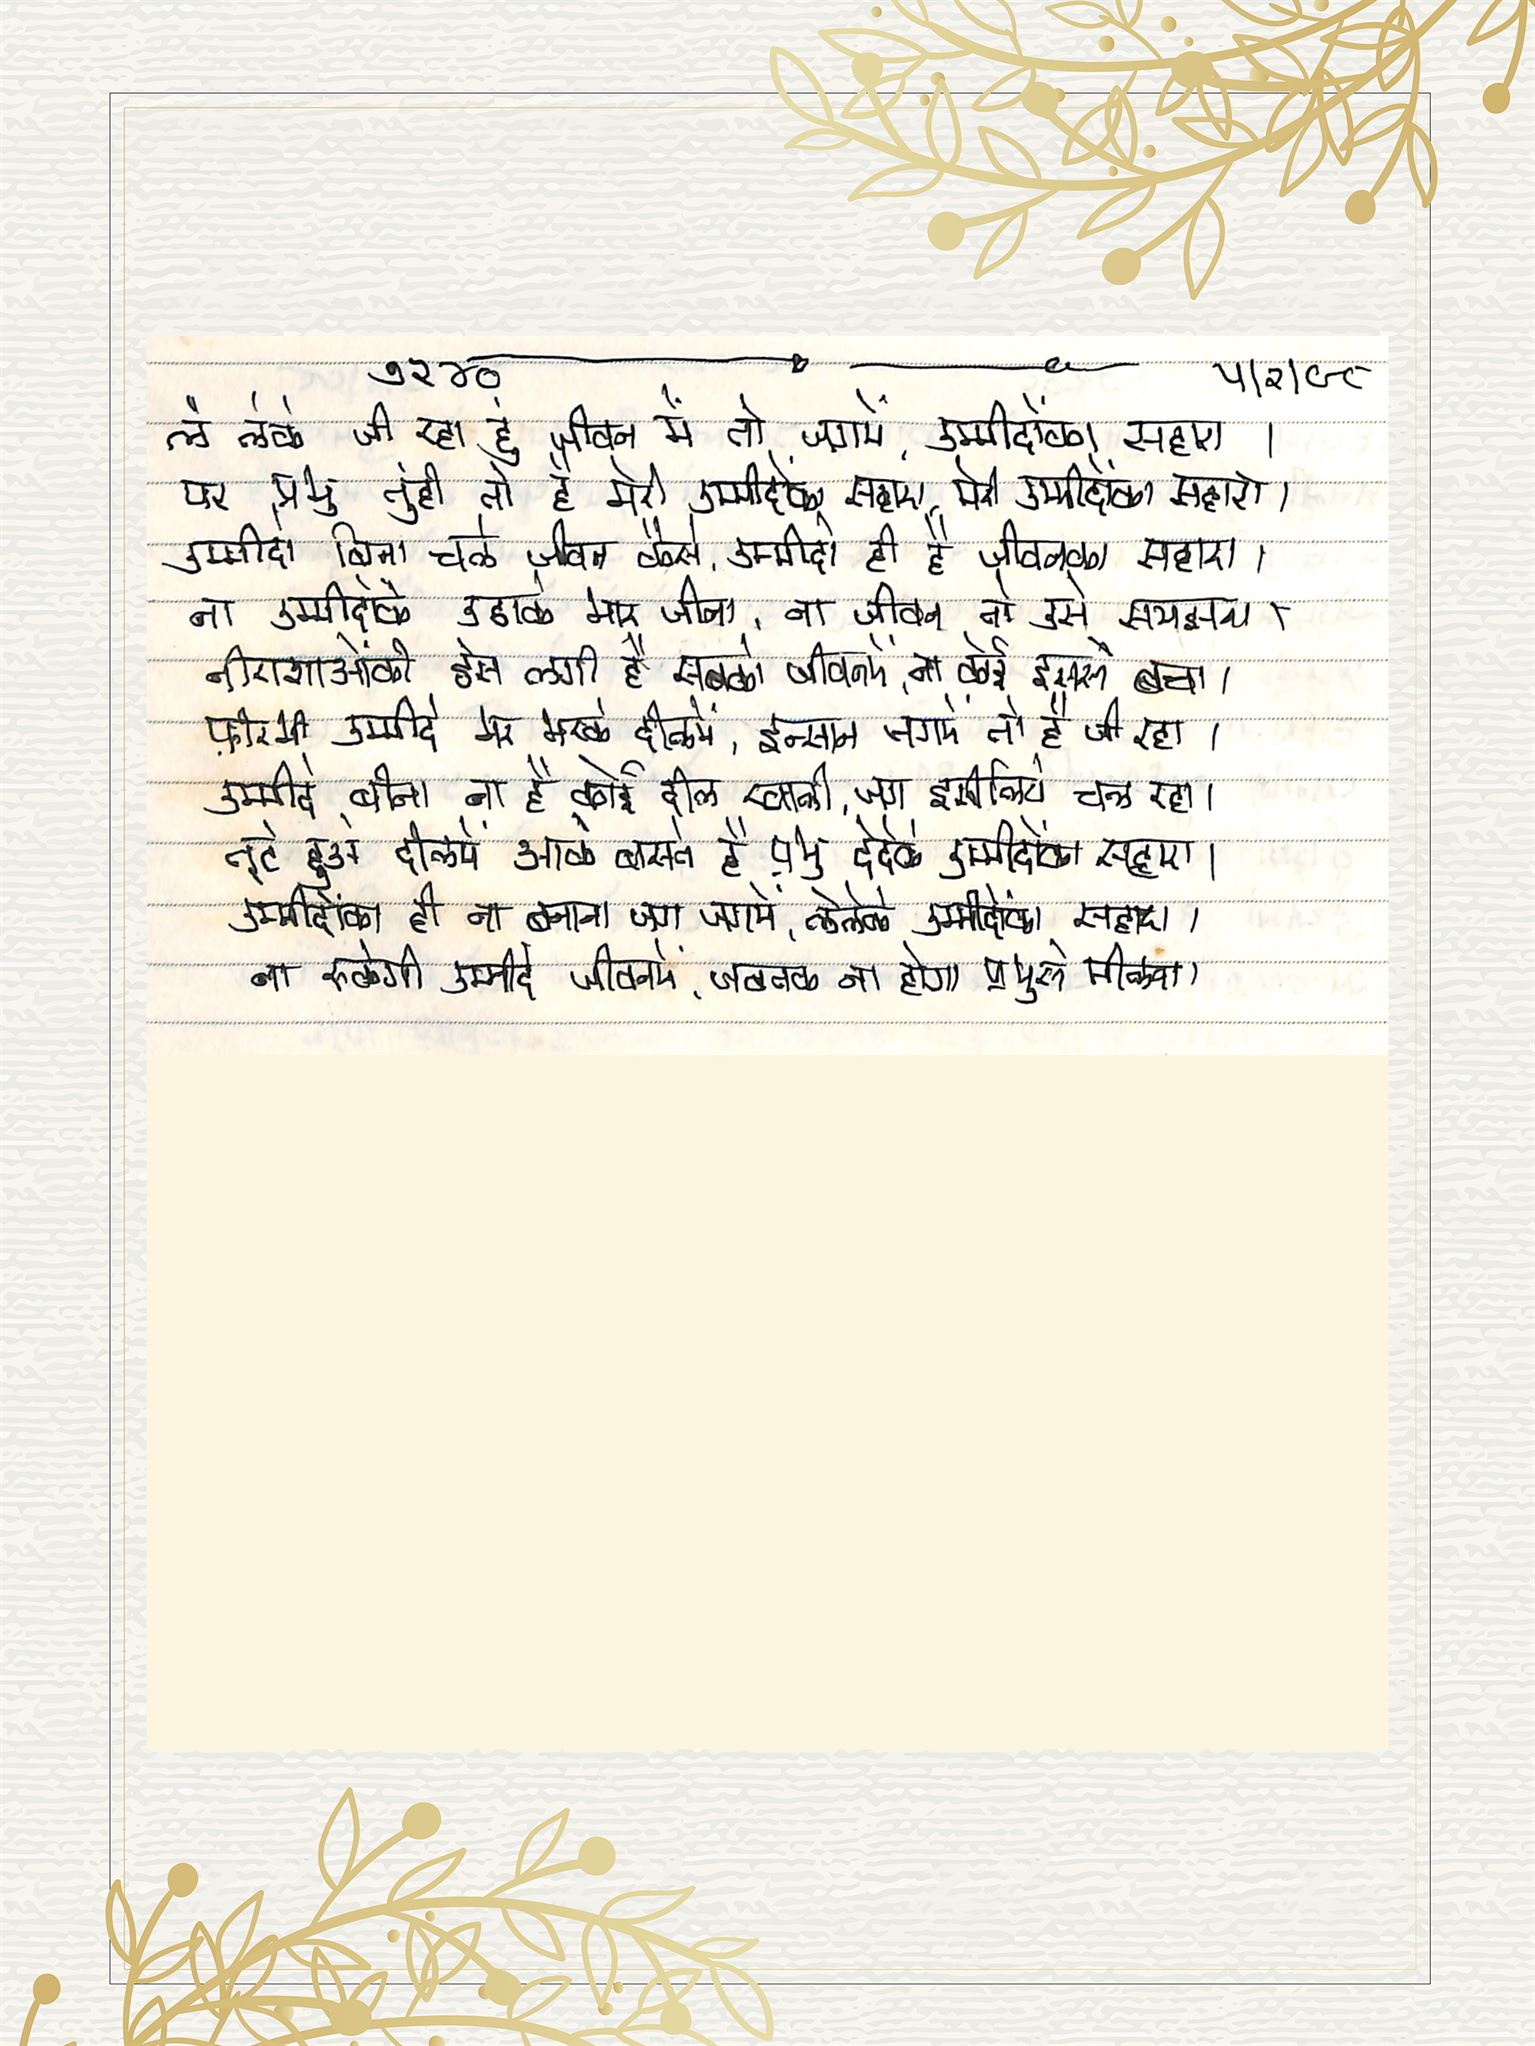 ७२४० ५/२/८९
ले लेके जी रहा हुं जीवन में तो जगमें, उम्मीदोंका सहारा ।
पर प्रभु तुंही तो है मेरी उम्मीदोंका सहारा, मेरी उम्मीदोंका सहारा ।
उम्मीदो बिना चले जीवन कैसे, उम्मीदो ही है जीवनका सहारा ।
ना उम्मीदोके उठाके भार जीना, ना जीवन तो उसे समझना ।
नीराशाओंकी ठेस लगी है सबको जीवनमें, ना कोई इससे बचा ।
फ़ीरभी उम्मीदे भर भरके दीलमें, इन्सान जगमें तो है जी रहा ।
उम्मीदे बीना ना है कोई दील खाली, जग इसीलिये चल रहा ।
तूटे हुअे दीलमें आके बसते है प्रभु देदेके उम्मीदोंका सहारा ।
उम्मीदोंका ही ना बनाना जग जगमें, लेलेके उम्मीदोंका सहारा ।
ना रुकेगी उम्मीदे जीवनमें, जबतक ना होगा प्रभुसे मीलना ।